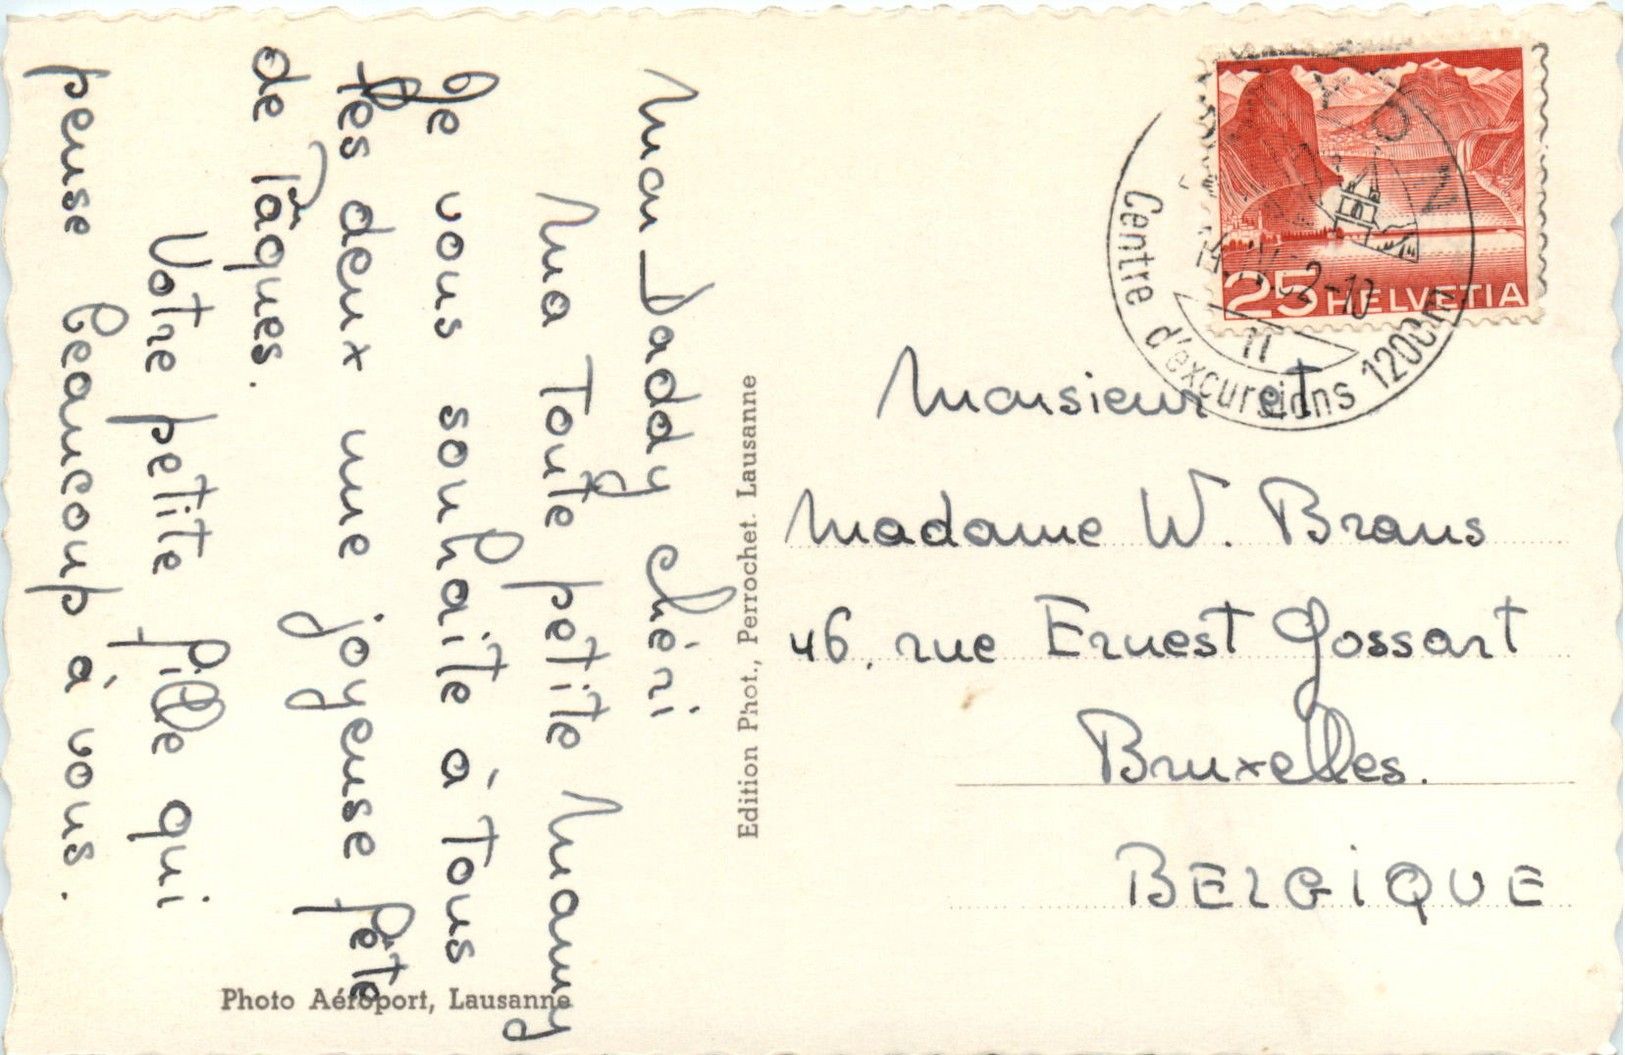 Mon Daddy chéri
Ma Toute petite Mamy
Je vous souhaite à tous
les deux une joyeuse fête
de Pâques.
Votre petite fille qui
pense beaucoup à vous.
Edition Phot., Perrochet. Lausanne
Photo Aéroport, Lausanne
25 HELVETIA
Centre d'excursions 1200m
Monsieur et
Madame W. Brans
46, rue Ernest Gossart
Bruxelles.
BELGIQUE